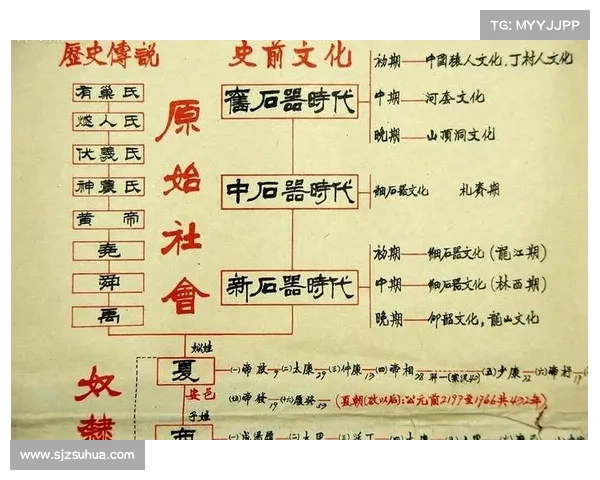 TG: MYYJJPP
歷史傳說
史前文化
有巢氏
燧人氏
伏羲氏
神農氏
黄帝
堯
舜
禹
原始社會
舊石器時代
初期——中國猿人文化，丁村人文化
中期——河套文化
晚期——山頂洞文化
中石器時代
細石器文化 札賚期
新石器時代
初期——細石器文化(龍江期)
中期——細石器文化(林西期)
晚期——仰韶文化，龍山文化
奴隸
姒姓
夏
安邑
子姓
㈠帝啟9㈡太康29㈢仲康13㈣帝相28 ㈤少康22㈥帝杼17
帝發19 履癸53(夏朝(啟以后):公元前2197至1766共432年)
商
㈠成湯
www.sjzsuhua.com